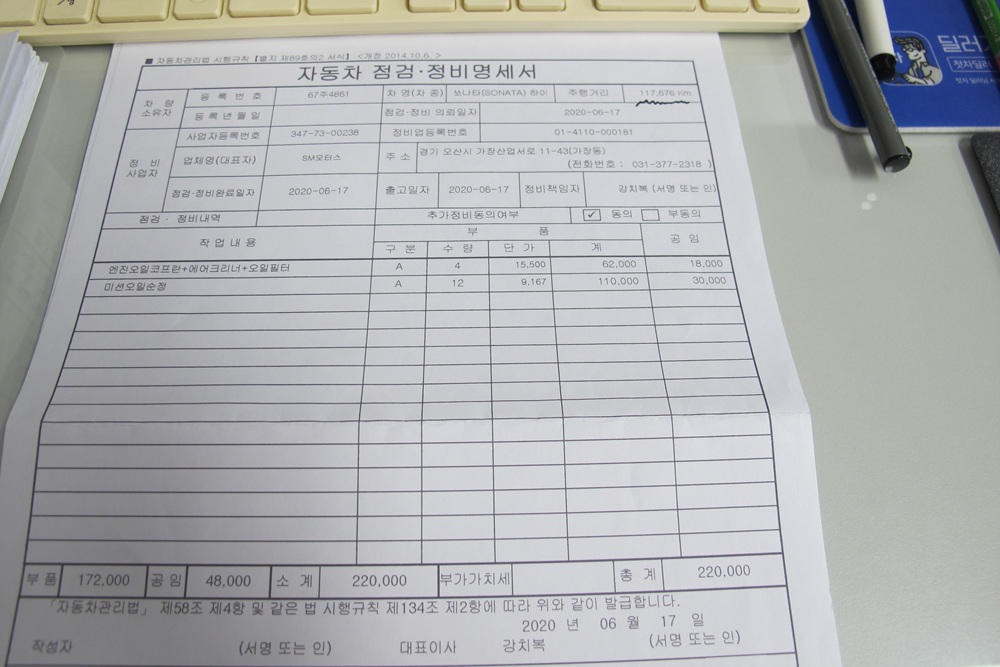 ■ 자동차관리법 시행규칙 [별지 제89호의2 서식] <개정 2014.10.6.>
자동차 점검·정비명세서
차 량 소유자 등 록 번 호 67주4861 차 명(차 종) 쏘나타(SONATA) 하이 주행거리 117,676 Km
등 록 년 월 일 점검·정비 의뢰일자 2020-06-17
정 비 사업자 사업자등록번호 347-73-00238 정비업등록번호 01-4110-000181
업체명(대표자) SM모터스 주 소 경기 오산시 가장산업서로 11-43(가장동)
(전화번호 : 031-377-2318 )
점검·정비완료일자 2020-06-17 출고일자 2020-06-17 정비책임자 강치복 (서명 또는 인)
점검 · 정비내역 추가정비동의여부 ✓ 동의 부동의
작 업 내 용 부 품 공 임
구 분 수 량 단 가 계
엔진오일코프란+에어크리너+오일필터 A 4 15,500 62,000 18,000
미션오일순정 A 12 9,167 110,000 30,000
부 품 172,000 공 임 48,000 소 계 220,000 부가가치세 총 계 220,000
「자동차관리법」 제58조 제4항 및 같은 법 시행규칙 제134조 제2항에 따라 위와 같이 발급합니다.
2020 년 06 월 17 일
작성자 (서명 또는 인) 대표이사 강치복 (서명 또는 인)
딜러
첫차딜러